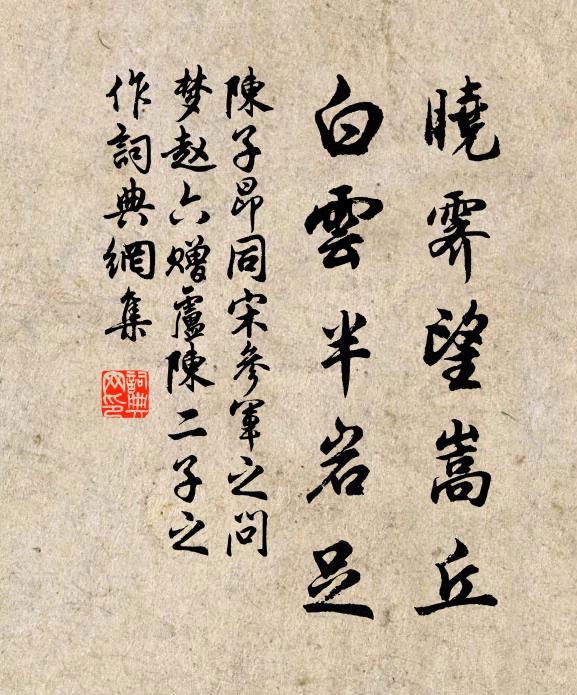 曉霽望嵩丘
白雲半岩足
陳子昂同宋參軍之問
梦赵六赠盧陳二子之
作詞典網集
詞典
网印